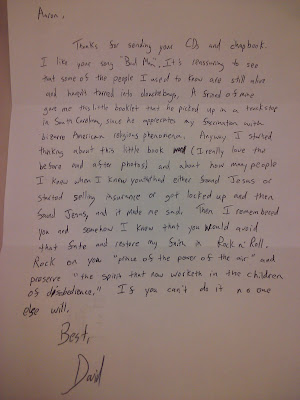 Aaron,
Thanks for sending your CDs and chapbook.
I like your song "Bad Man". It's reassuring to see
that some of the people I used to know are still alive
and haven't turned into douchebags. A friend of mine
gave me this little booklet that he picked up in a truck stop
in South Carolina, since he appreciates my fascination with
bizarre American religious phenomenon. Anyway, I started
thinking about this little book (I really love the
before and after photos) and about how many people
I know when I knew you had either found Jesus or
started selling insurance or got locked up and then
found Jesus, and it made me sad. Then I remembered
you and somehow I know that you would avoid
that fate and restore my faith in Rock n' Roll.
Rock on you "prince of the power of the air" and
preserve "the spirit that now worketh in the children
of disobedience." If you can't do it no one
else will.
Best,
David